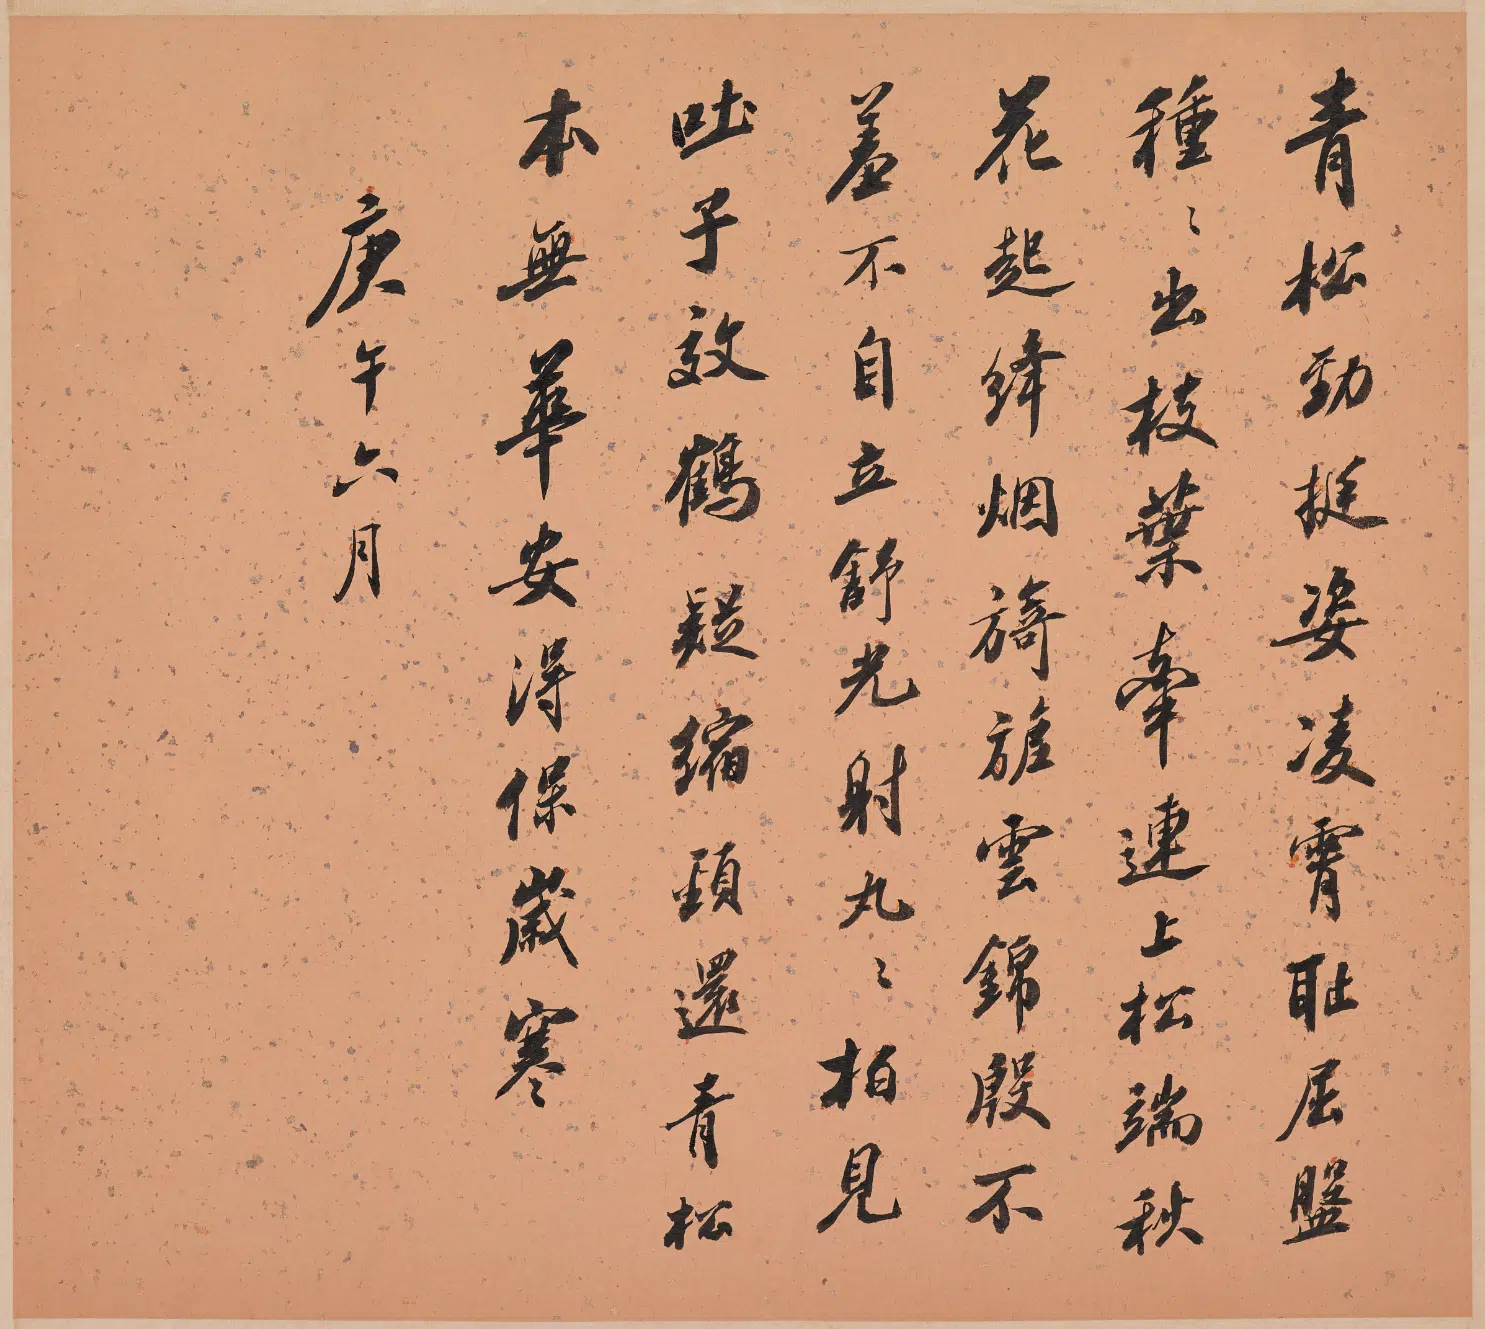 青松勁挺姿凌霄耻屈盤
種〻出枝葉牽連上松端秋
花起絳烟旖旎雲錦殷不
羞不自立舒光射丸〻柏見
吐子效鶴疑縮頸還青松
本無華安得保歲寒
庚午六月